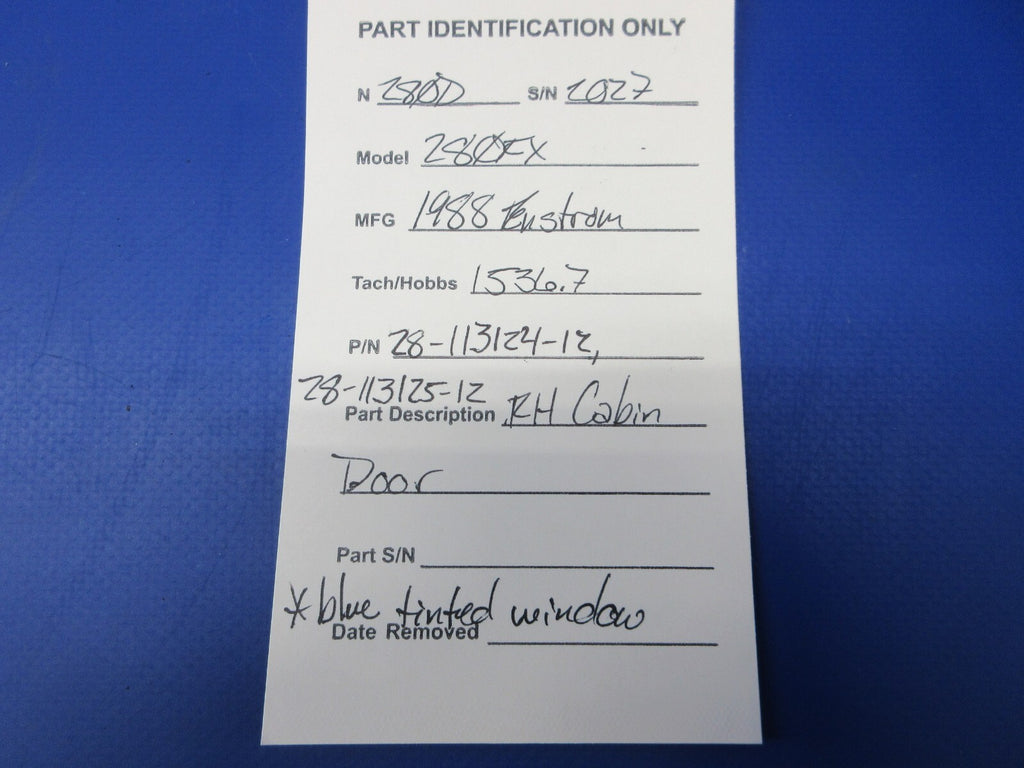 PART IDENTIFICATION ONLY
N 280D S/N 2027
Model 280FX
MFG 1988 Enstrom
Tach/Hobbs 1536.7
P/N 28-113124-12,
28-113125-12
Part Description RH Cabin
Door
Part S/N
*blue tinted window
Date Removed